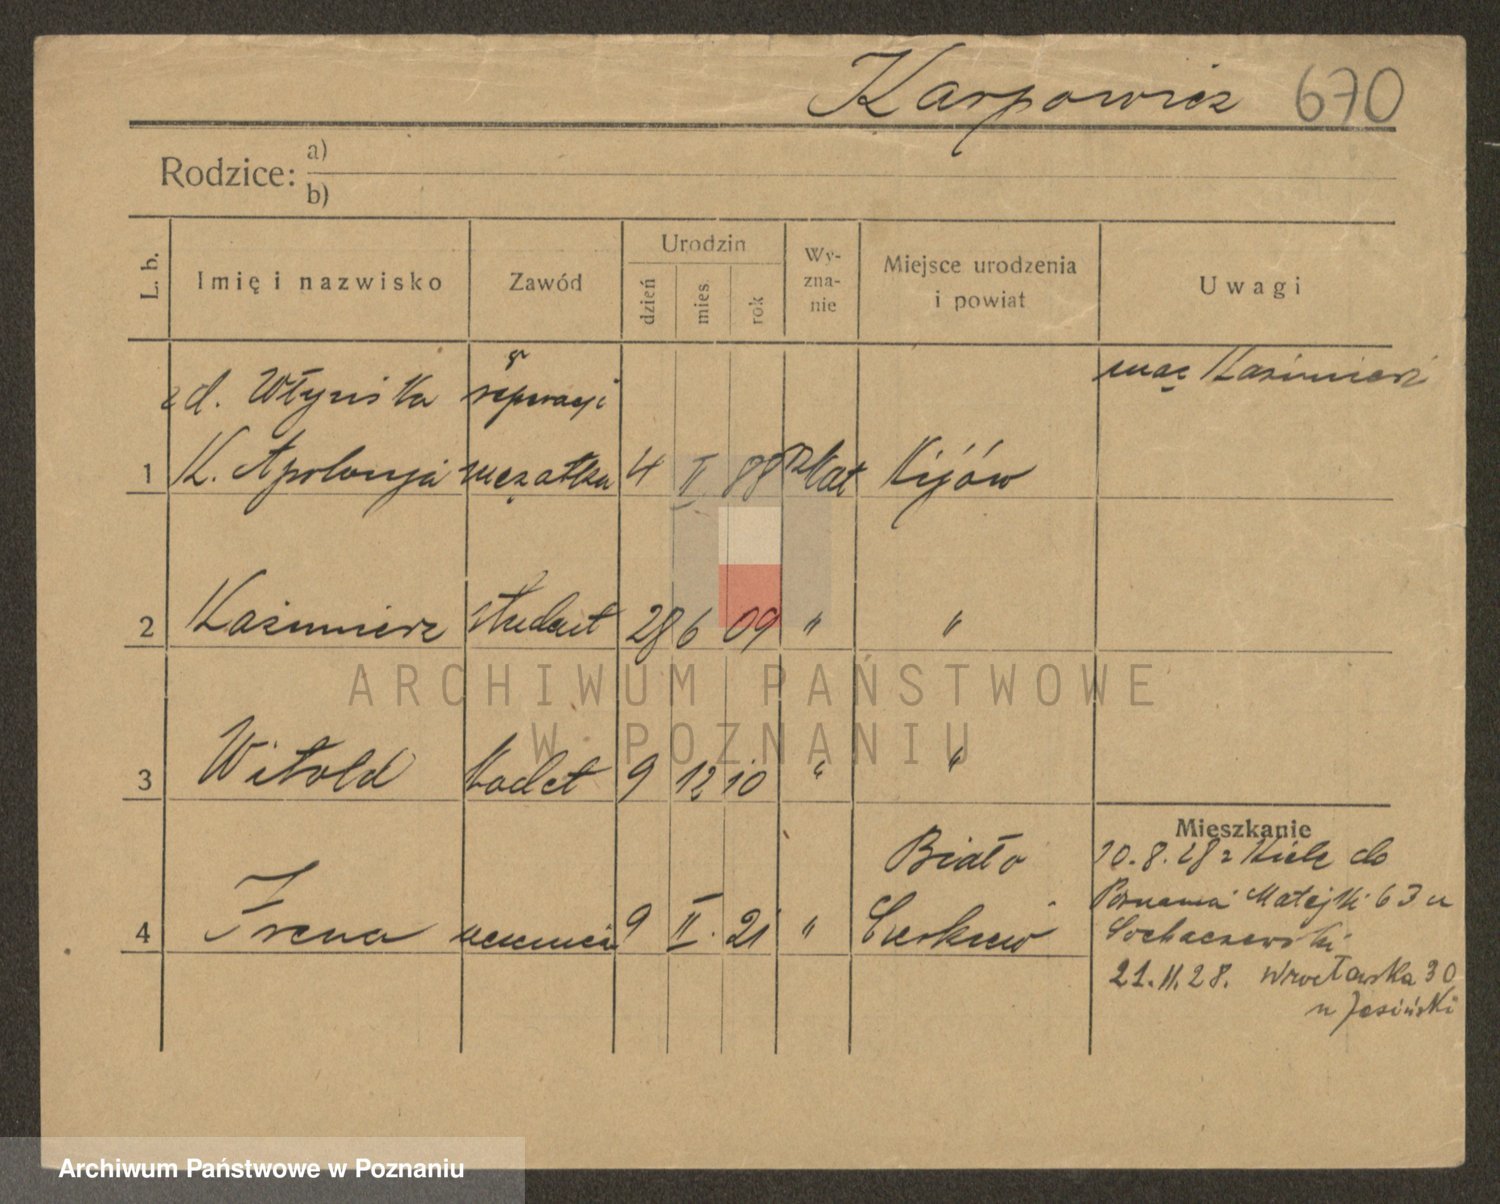 Karpowicz 670
Rodzice: a)
b)
L. b. Imię i nazwisko Zawód Urodzin dzień mies rok Wy-zna-nie Miejsce urodzenia i powiat Uwagi
z d. w separacji mąż Kazimierz
1 K. Apolonja mężatka 4 II 88 Rzkat Kijów
2 Kazimierz student 28 6 09 " "
3 Witold kadet 9 12 10 " "
Mieszkanie
4 Irena uczenica 9 II. 21 " Biało Cerkiew
20.8.28 z Kielc do
Poznania Matejki 63 u
Sochaczewski
21.11.28. Wrocławska 30
u Jasiński
ARCHIWUM PAŃSTWOWE
W POZNANIU
Archiwum Państwowe w Poznaniu